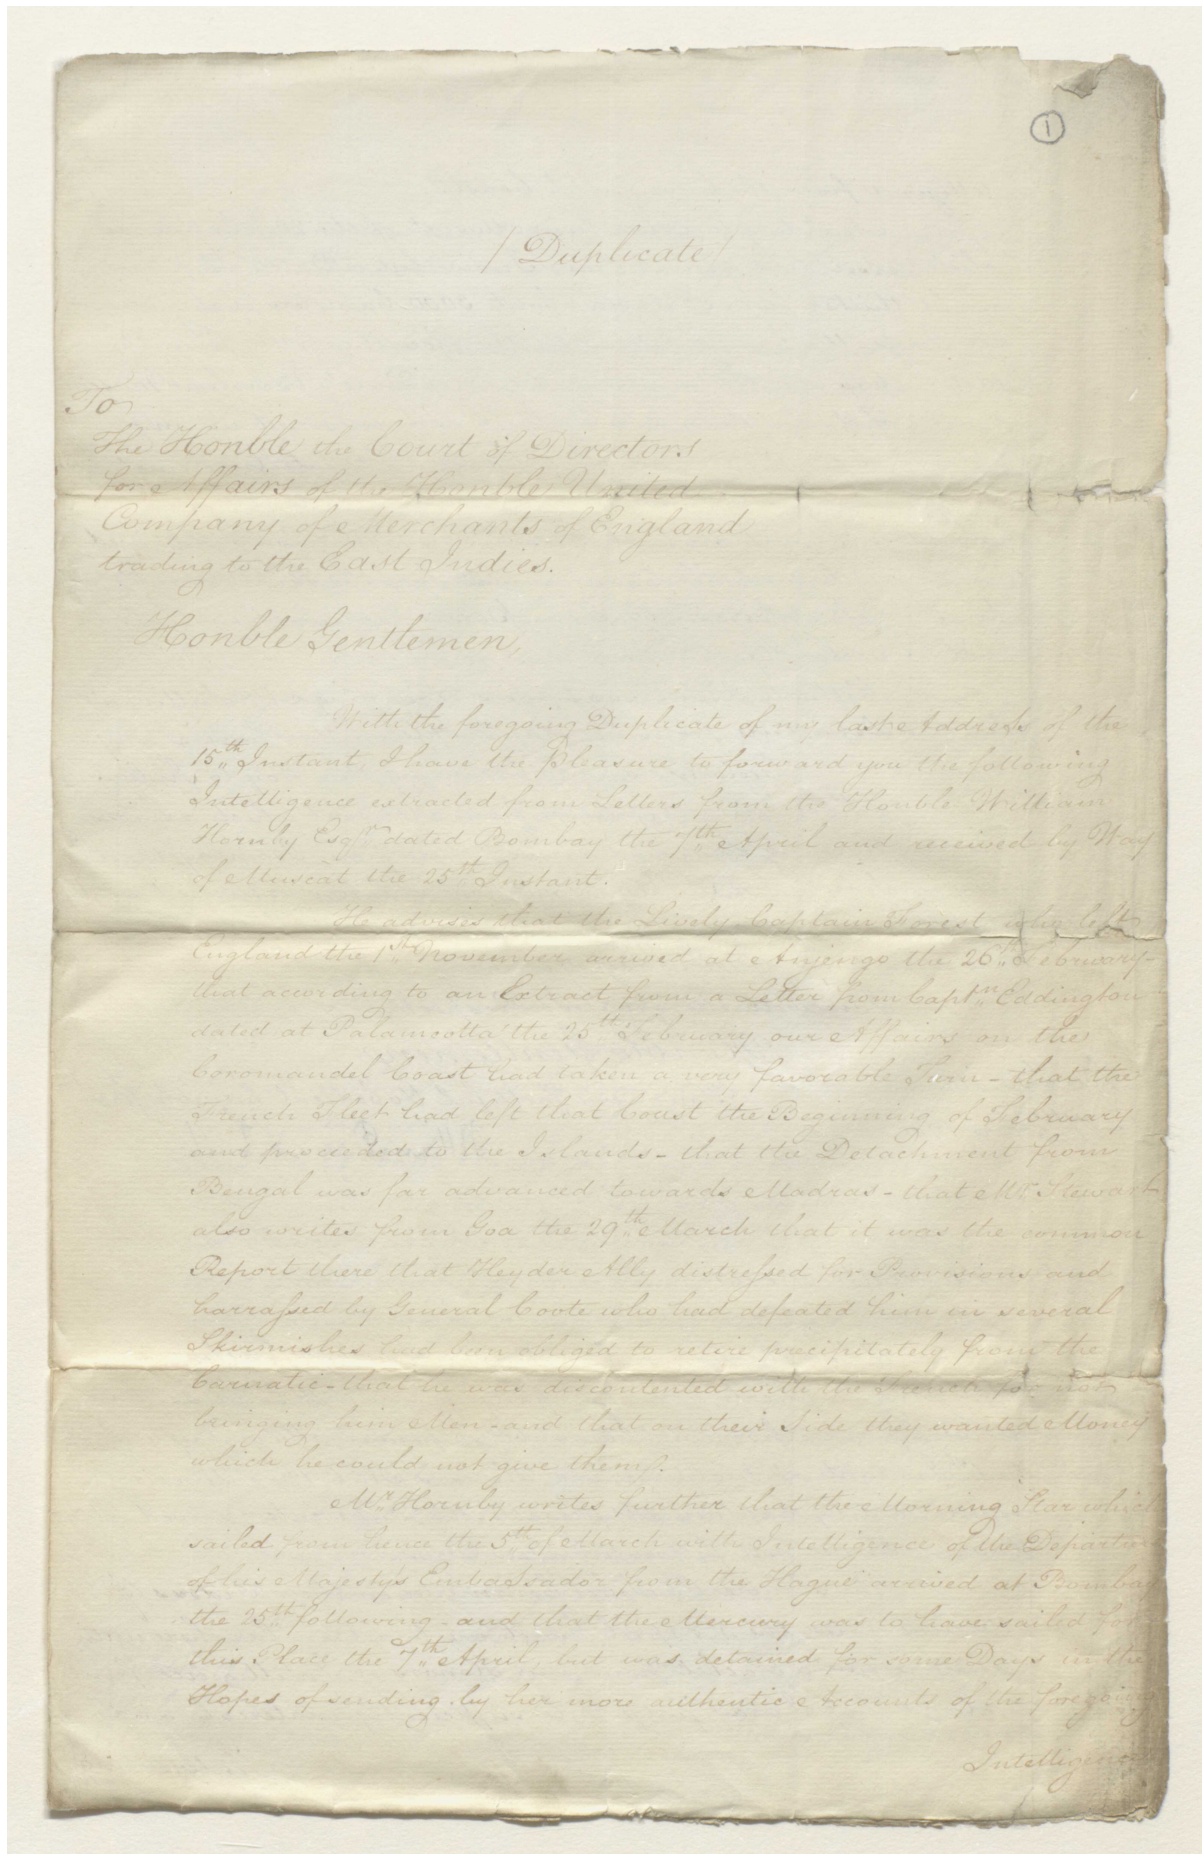 1
/ Duplicate /
To
The Honble the Court of Directors
for Affairs of the Honble United
Company of Merchants of England
trading to the East Indies.
Honble Gentlemen,
With the foregoing Duplicate of my last Address of the
15th Instant, I have the Pleasure to forward you the following
Intelligence extracted from Letters from the Honble William
Hornby Esqr dated Bombay the 7th April and received by Way
of Muscat the 25th Instant.
He advises that the Lively Captain Forest who left
England the 1st November, arrived at Anjengo the 26th February -
that according to an Extract from a Letter from Captn Eddington
dated at Palamcotta the 25th February our Affairs on the
Coromandel Coast had taken a very favorable Turn - that the
French Fleet had left that Coast the Beginning of February
and proceeded to the Islands - that the Detachment from
Bengal was far advanced towards Madras - that Mr Stewart
also writes from Goa the 29th March that it was the common
Report there that Heyder Ally distressed for Provisions and
harrassed by General Coote who had defeated him in several
Skirmishes had been obliged to retire precipitately from the
Carnatic - that he was discontented with the French for not
bringing him Men - and that on their Side they wanted Money
which he could not give them.
Mr Hornby writes further that the Morning Star which
sailed from hence the 5th of March with Intelligence of the Departure
of his Majesty's Embassador from the Hague arrived at Bombay
the 25th following - and that the Mercury was to have sailed for
this Place the 7th April, but was detained for some Days in the
Hopes of sending by her more authentic Accounts of the foregoing
Intelligence